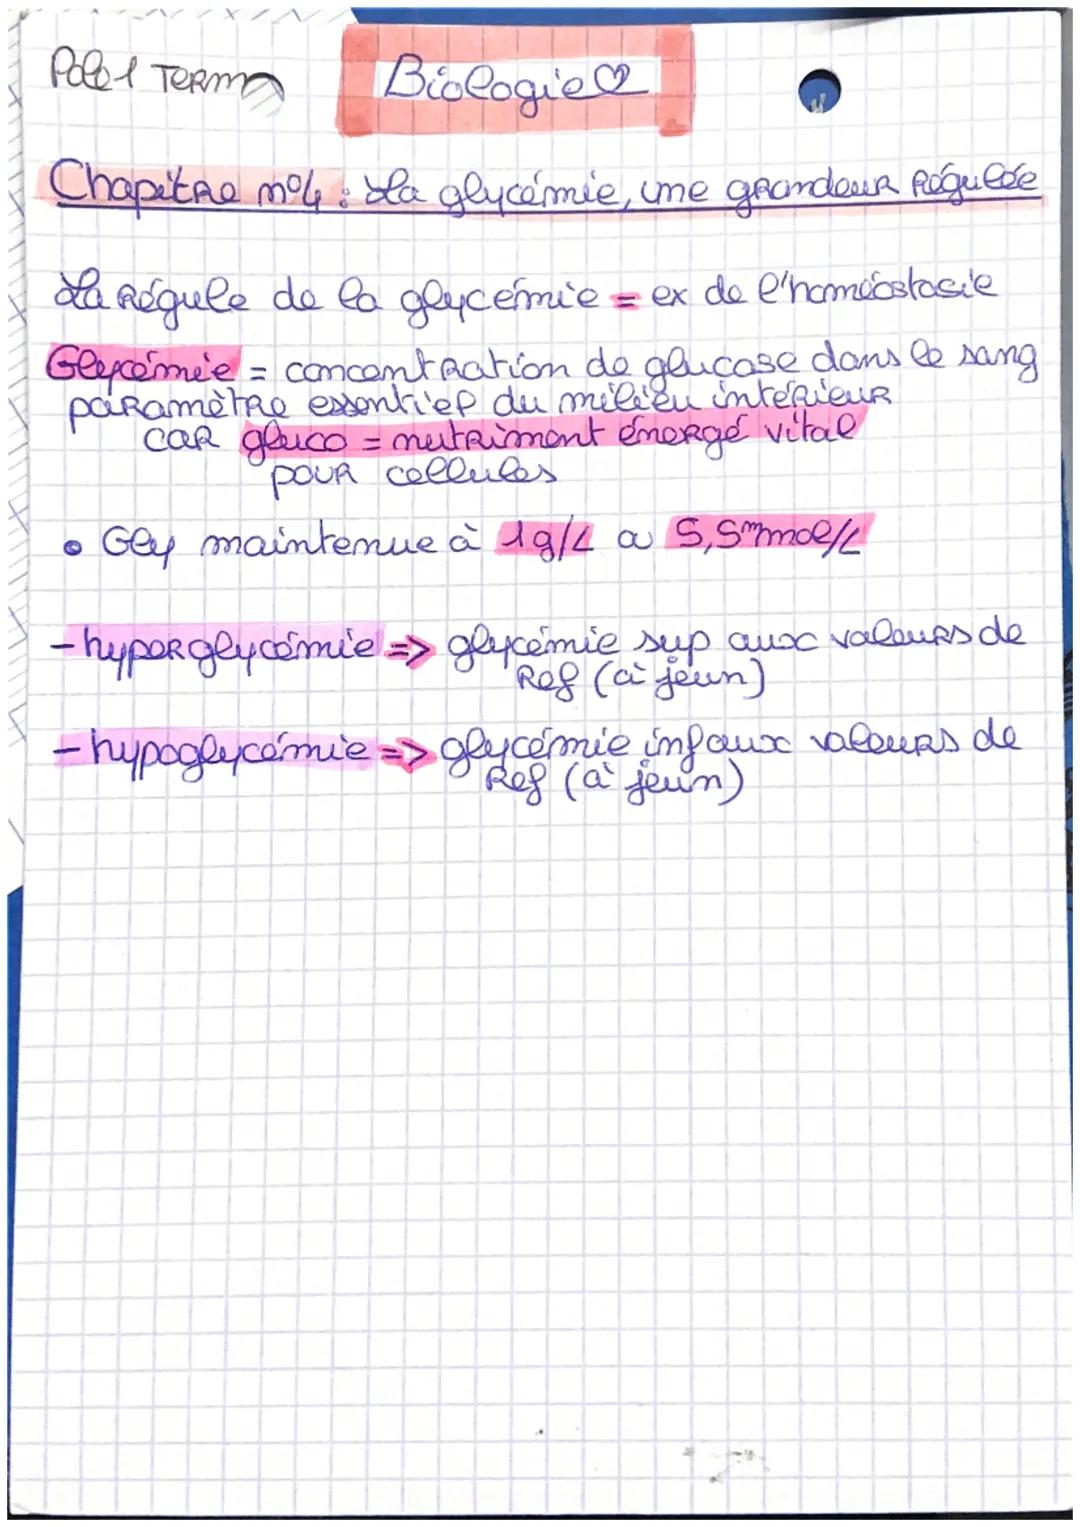 Pole 1 Term
Biologie ♡
Chapitre n°4 : La glycémie, une grandeur Régulée
La Régule de la glycémie = ex de l'homéostasie
Glycémie = concentration de glucose dans le sang
paramètre essentiel du milieu intérieur
car gluco = nutriment énergé vital
pour cellules
• Gly maintenue à 1g/L a 5,5mmol/L
- hyperglycémie => glycémie sup aux valeurs de
Ref (à jeun)
- hypoglycémie => glycémie inf aux valeurs de
Ref (à jeun)